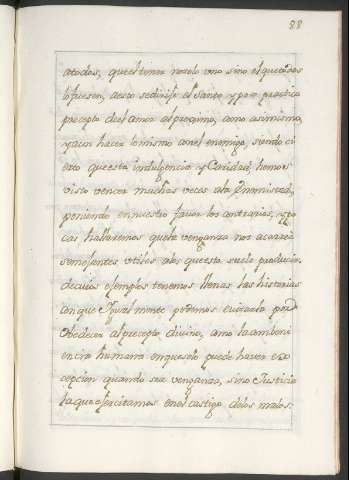 88
atodos, que el tener no solo uno sino el que todos
lo fuesen, a esto se dirije el santo y
precepto del amor al proximo, como asimismo,
y aun hacer lo mismo con el enemigo, siendo ci
erto que esta indulgencia y Caridad, hemos
visto vencer muchas veces ala Enemistad,
poniendo en nuestro favor los contrarios, y po
cas hallaremos que la venganza nos acarree
semejantes utiles alos que esta suele producir.
de cuios ejemplos tenemos llenas las historias
con que Igual mente podemos evitarla por
Obedecer al precepto divino, como tambien
en ira humana en que solo puede haver ex
cepcion quando sea venganza, sino Justicia
la que ejercitamos en el castigo delos malos.